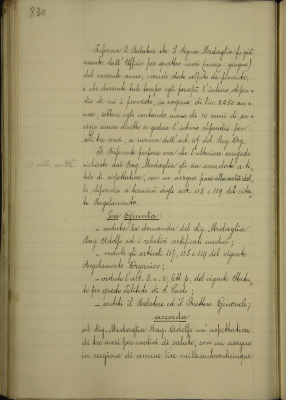 830
Riferisce il Relatore che il Signor Medaglia fu già
assente dall'Ufficio per quattro mesi (marzo-giugno)
del corrente anno, essendo stato colpito da pleurite,
e che durante tale tempo egli percepì l'intiero stipen-
dio di cui è provvisto, in ragione di lire 2250 an-
nue, sebbene egli contando meno di 10 anni di ser-
vizio avesse diritto a godere l'intiero stipendio per
soli tre mesi, a norma dell'art. 117 del Reg. Org.
Il Referente propone ora che l'ulteriore congedo
richiesto dal Rag. Medaglia gli sia accordato a tito-
lo di aspettativa, con un assegno pari alla metà del-
lo stipendio a termini degli art. 118 e 119 del cita-
to Regolamento.
La Giunta:
- veduta la domanda del Sig. Medaglia
Rag. Adolfo ed i relativi certificati medici;
- veduti gli articoli 117, 118 e 119 del vigente
Regolamento Organico;
- veduto l'art. 8, n. 6, lett. p, del vigente Statu-
to per questo Istituto di S. Paolo;
- sentiti il Relatore ed il Direttore Generale;
accorda
al Sig. Medaglia Rag. Adolfo un'aspettativa
di tre mesi per motivi di salute, con un assegno
in ragione di annue lire millecentoventicinque